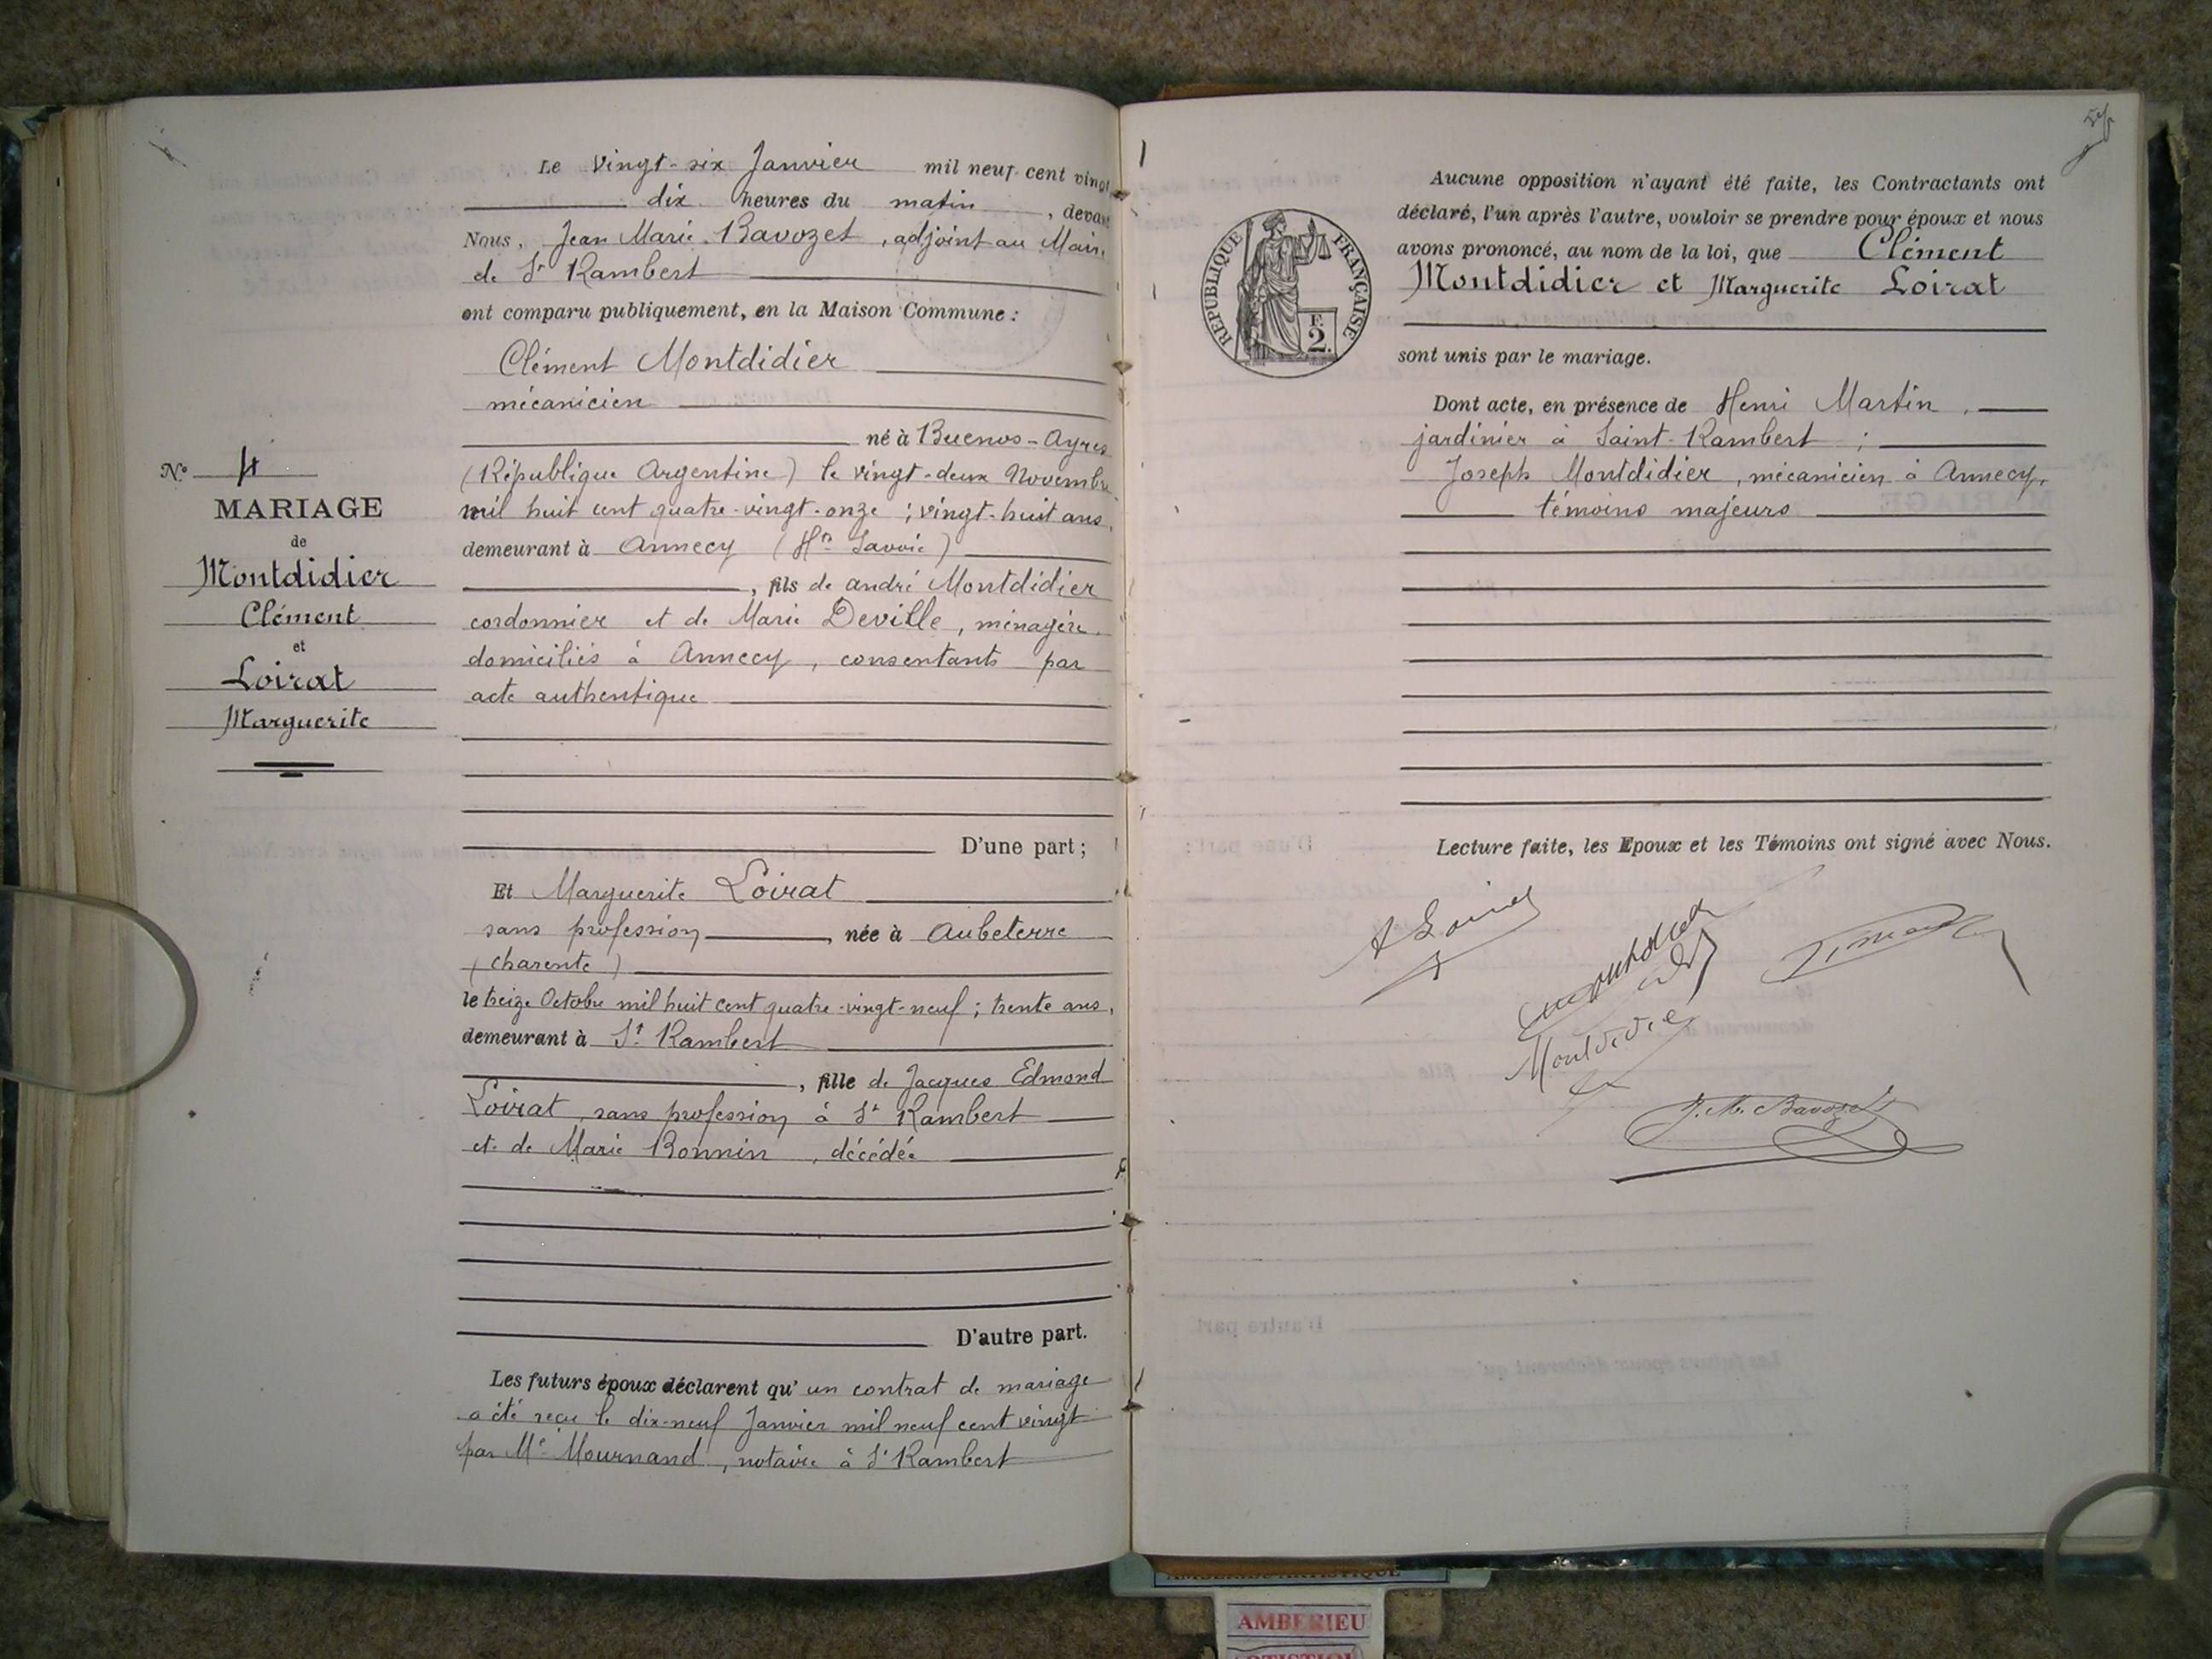 Le vingt-six Janvier mil neuf cent vingt
dix heures du matin, devant
Nous, Jean Marie Bavozet, adjoint au Maire
de St Rambert
ont comparu publiquement, en la Maison Commune :
Clément Montdidier
mécanicien
né à Buenos-Ayres
(République Argentine) le vingt-deux Novembre
mil huit cent quatre-vingt-onze ; vingt-huit ans,
demeurant à Annecy (Hte Savoie)
, fils de andré Montdidier
cordonnier et de Marie Deville, ménagère,
domiciliés à Annecy, consentants par
acte authentique
D'une part ;
Et Marguerite Loirat
sans profession, née à Aubeterre
(charente)
le treize Octobre mil huit cent quatre-vingt-neuf ; trente ans,
demeurant à St Rambert
, fille de Jacques Edmond
Loirat, sans profession à St Rambert
et de Marie Bonnin, décédée
D'autre part.
Les futurs époux déclarent qu'un contrat de mariage
a été reçu le dix-neuf Janvier mil neuf cent vingt
par Me Mournand, notaire à St Rambert
No 4
MARIAGE
de
Montdidier
Clément
et
Loirat
Marguerite
Aucune opposition n'ayant été faite, les Contractants ont
déclaré, l'un après l'autre, vouloir se prendre pour époux et nous
avons prononcé, au nom de la loi, que Clément
Montdidier et Marguerite Loirat
sont unis par le mariage.
Dont acte, en présence de Henri Martin,
jardinier à Saint-Rambert ;
Joseph Montdidier, mécanicien à Annecy,
témoins majeurs
REPUBLIQUE FRANÇAISE
F.
2.
Lecture faite, les Epoux et les Témoins ont signé avec Nous.
Montdidier
J. M. Bavozet
AMBERIEU ARTISTIQUE
AMBERIEU